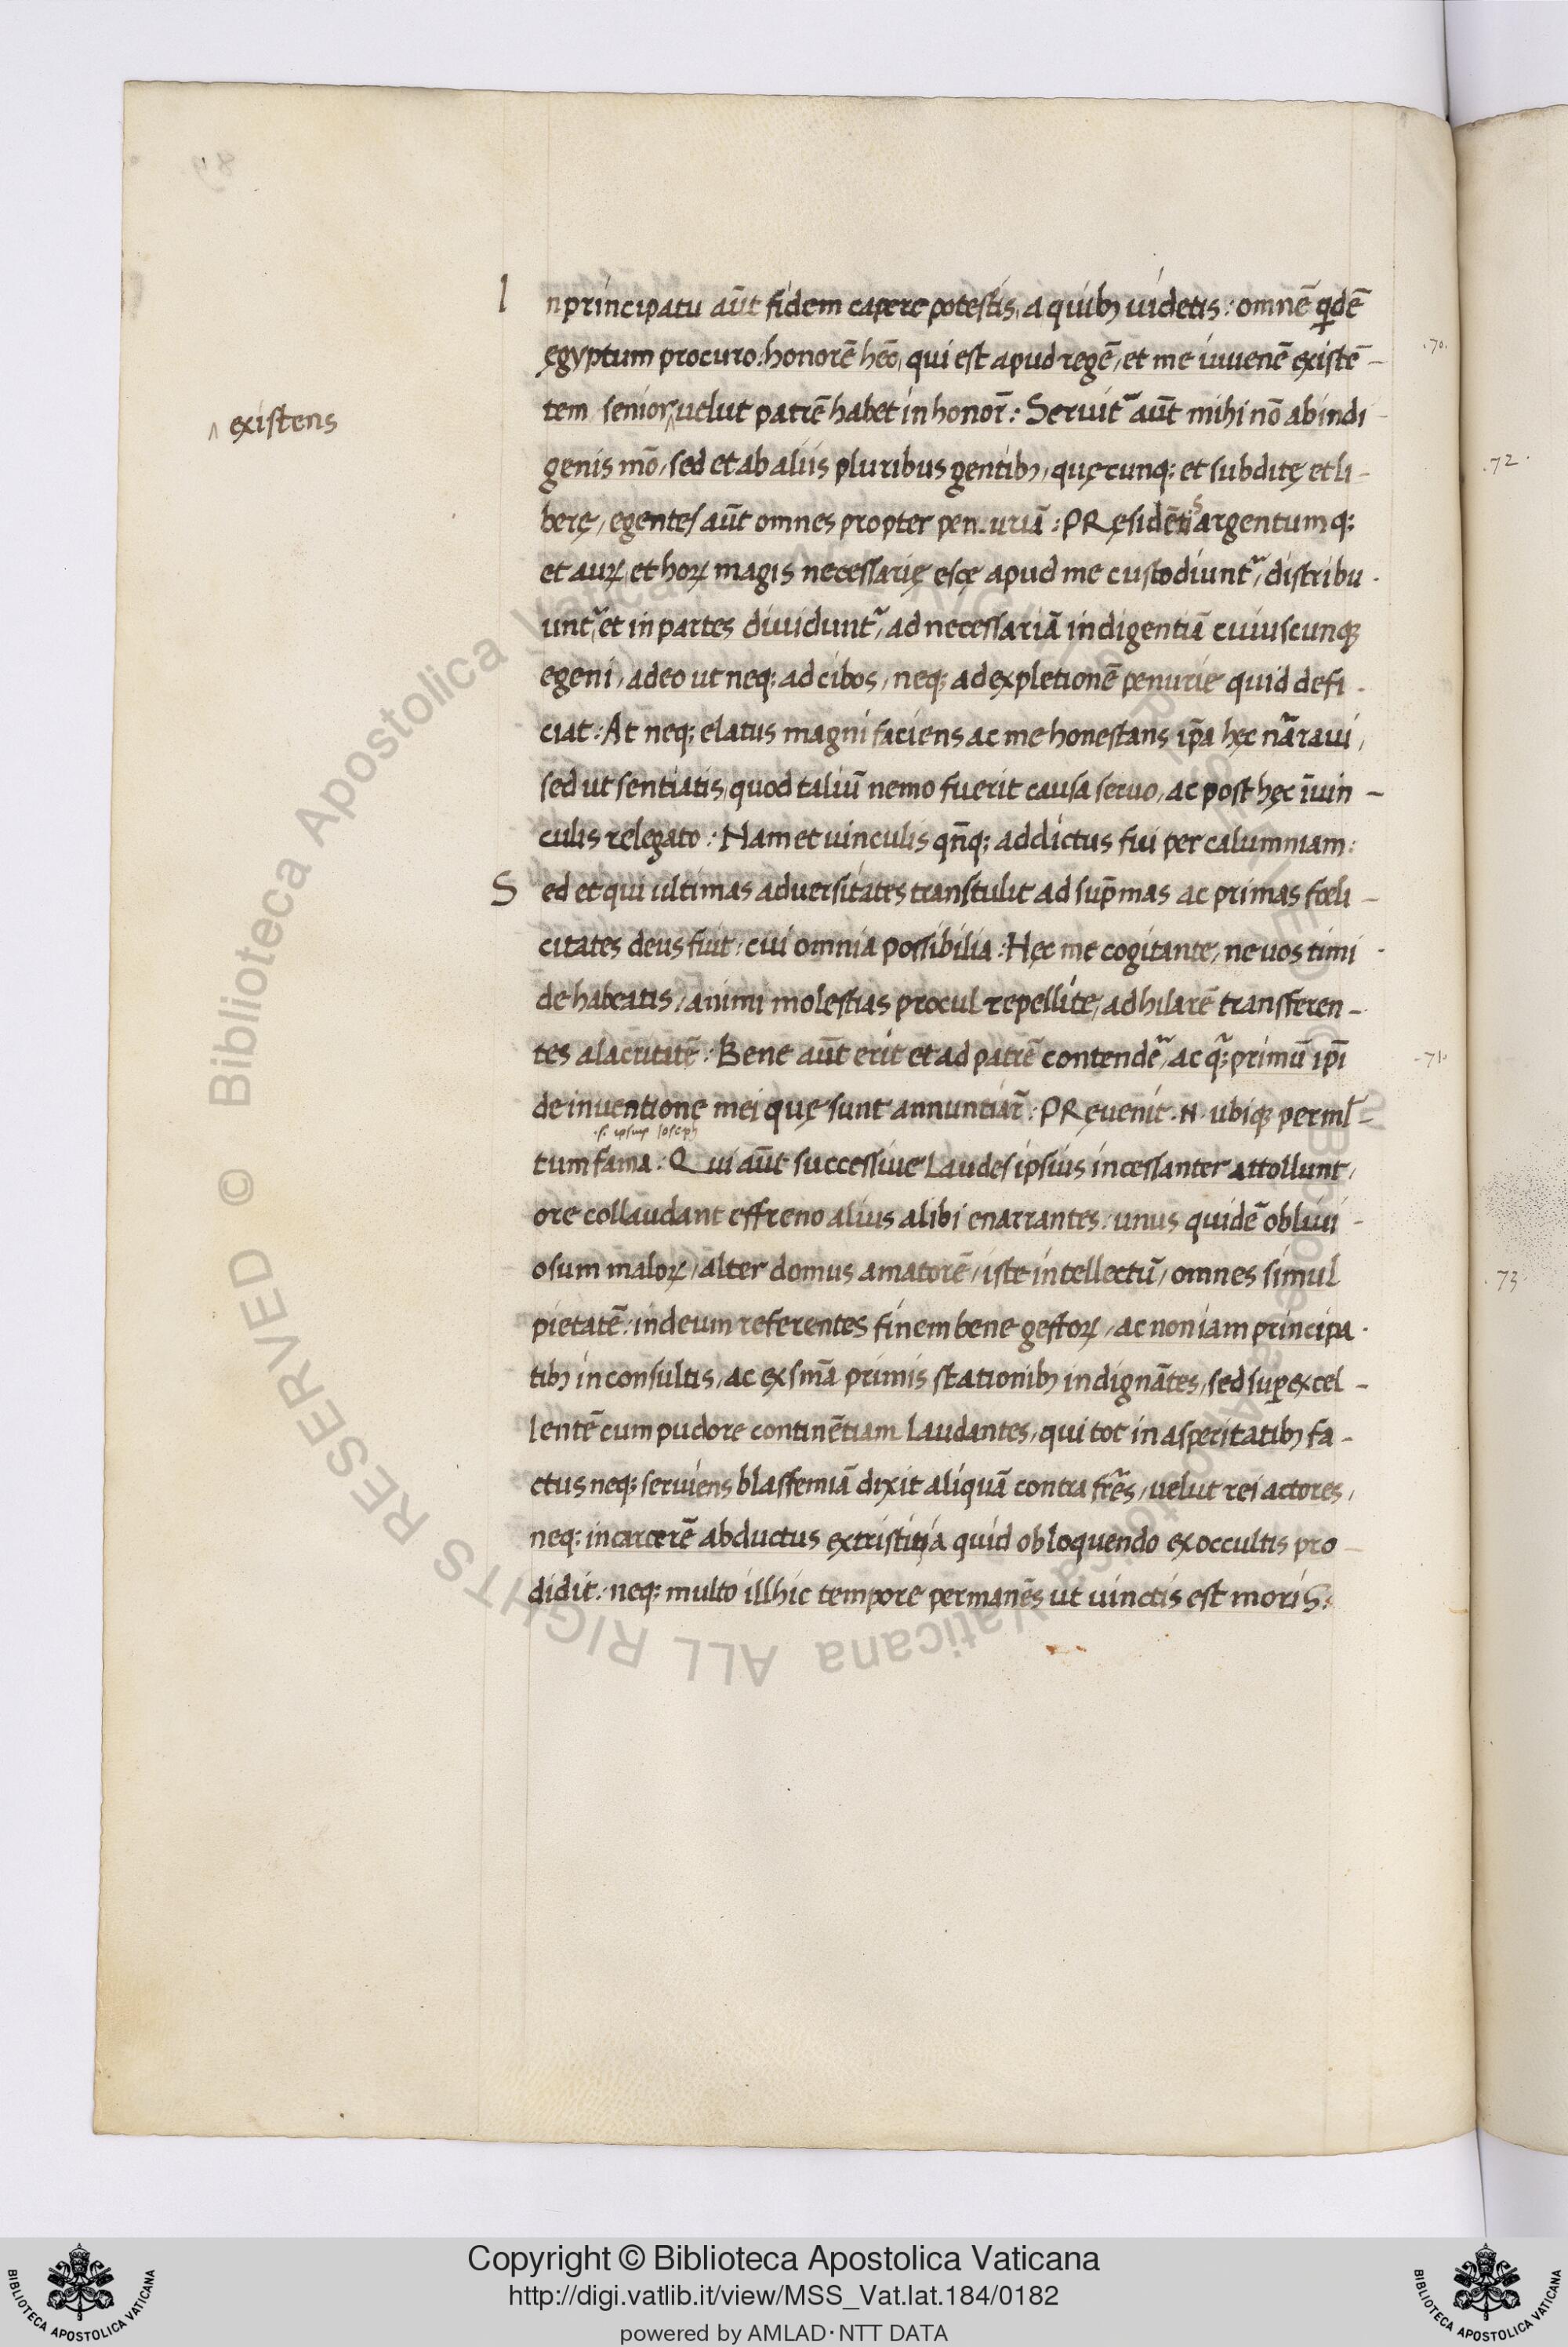 In principatu aūt fidem capere potestis, a quibꝫ uidetis: omnē qͥdē
ęgyptum procuro: honorē hēo, qui est apud regē, et me iuuenē existē-
tem senior ‸ uelut patrē habet in honor̄: Seruit᷑ aūt mihi nō ab indi-
‸ existens
genis mō, sed et ab aliis pluribus gentibꝫ, quęcunqꝫ et subditę et li-
berę, egentes aūt omnes propter penuriā: PRęsidētis argentumqꝫ
et auꝝ, et hoꝝ magis necessarię escę apud me custodiunt᷑, distribu-
unt᷑, et in partes diuidunt᷑, ad necessariā indigentiā cuiuscunqꝫ
egeni, adeo ut neqꝫ ad cibos, neqꝫ ad expletionē penurie quid defi-
ciat: At neqꝫ elatus magni faciens ac me honestans ip̄a hęc nāraui,
sed ut sentiatis, quod taliū nemo fuerit causa seruo, ac post hęc ī uin-
culis relegato: Nam et uinculis qn̄qꝫ addictus fui per calumniam:
Sed et qui ultimas aduersitates transtulit ad sup̄mas ac primas fœli-
citates deus fuit, cui omnia possibilia: Hęc me cogitante, ne uos timi-
de habeatis, animi molestias procul repellite, ad hilarē transferen-
tes alacritatē: Bene aūt erit et ad patrē contendē᷑, ac qᷓꝫ primū ip̄i
de inuentione mei quę sunt annuntiar̄: PRęuenit .N. ubiqꝫ perml̄-
.s. ipsum Ioseph
tum fama: Qui aūt successiue laudes ipsius incessanter attollunt,
ore collaudant effreno alius alibi enarrantes: unus quidē obliui-
osum maloꝝ, alter domus amatorē, iste intellectū, omnes simul
pietatē: in deum referentes finem bene gestoꝝ, ac non iam principa-
tibꝫ inconsultis, ac ex smā primis stationibꝫ indignātes, sed suꝑexcel-
lentē cum pudore continētiam laudantes, qui tot in asperitatibꝫ fa-
ctus neqꝫ seruiens blasfemiā dixit aliquā contra fr̄es, uelut rei actores,
neqꝫ in carcerē abductus ex tristitia quid obloquendo ex occultis pro-
didit: neqꝫ multo illhic tempore permanēs ut uinctis est moris:
.70.
.71.
.72.
.73.
89
Biblioteca Apostolica Vaticana ALL RIGHTS RESERVED ©
Copyright © Biblioteca Apostolica Vaticana
http://digi.vatlib.it/view/MSS_Vat.lat.184/0182
powered by AMLAD·NTT DATA
BIBLIOTECA APOSTOLICA VATICANA
BIBLIOTECA APOSTOLICA VATICANA